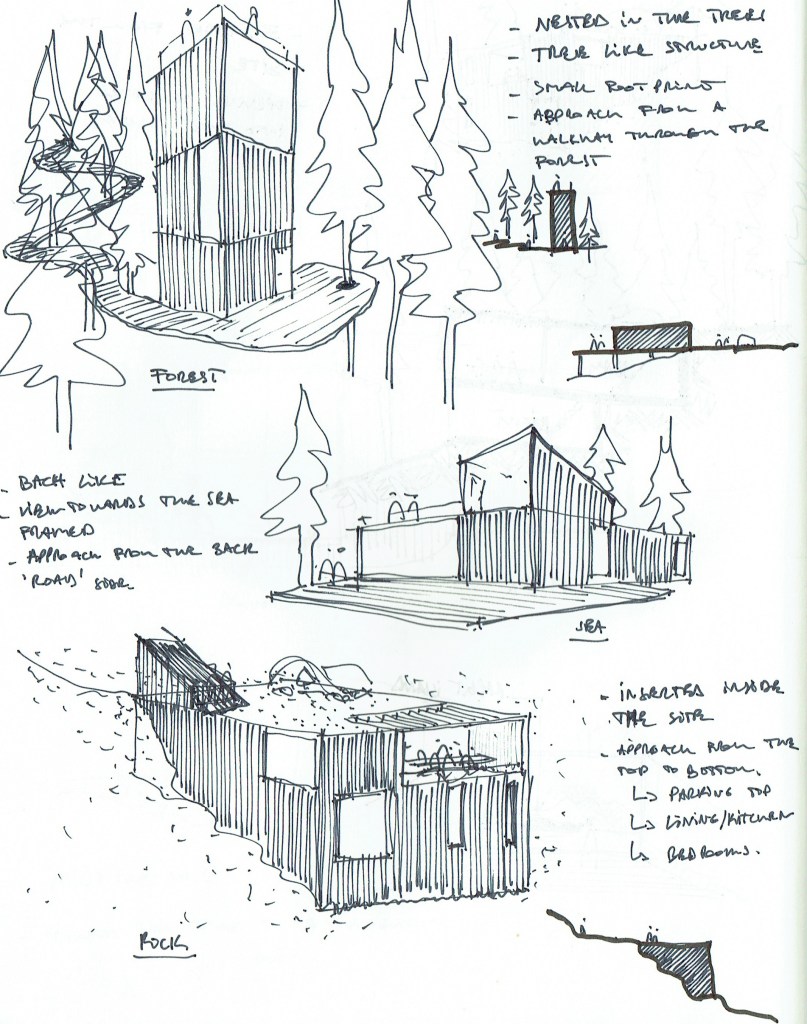 - NESTED IN THE TREES
- TREE LIKE STRUCTURE
- SMALL FOOTPRINT
- APPROACH FROM A
WALKWAY THROUGH THE
FOREST
FOREST
- BACH LIKE
- VIEW TOWARDS THE SEA
FRAMED
- APPROACH FROM THE BACK
'ROAD' SIDE
SEA
- INSERTED INSIDE
THE SITE
- APPROACH FROM THE
TOP TO BOTTOM.
↳ PARKING TOP
↳ LIVING/KITCHEN
↳ BEDROOMS.
ROCK